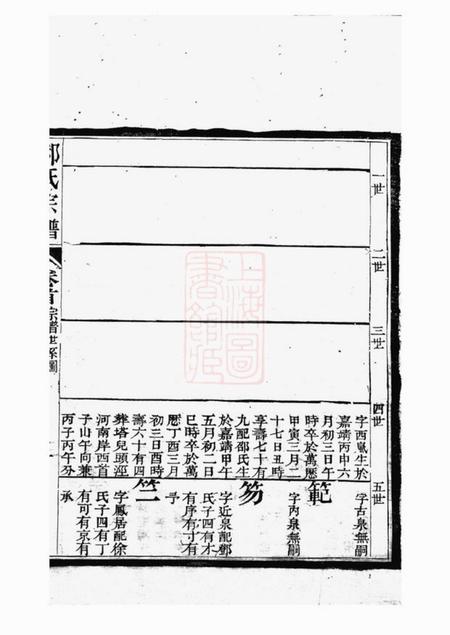 一世
二世
三世
四世
字西嵐生於
嘉靖丙申六
月初三日午
時卒於萬曆
甲寅三月二
十七日丑時
享壽七十有
九配邵氏生
於嘉靖甲午
五月初二日
巳時卒於萬
曆丁酉三月
初三日酉時
壽六十有四
葬塔兒頭涇
河南岸西首
子山午向兼
丙子丙午分
五世
範
字古泉無嗣
字丙泉無嗣
笏
字近泉配鄧
氏子四有木
有序有寸有
乎
竺
字鳳居配徐
氏子四有丁
有可有京有
承
氏宗譜
卷首
宗譜世系圖
上海圖
書館藏